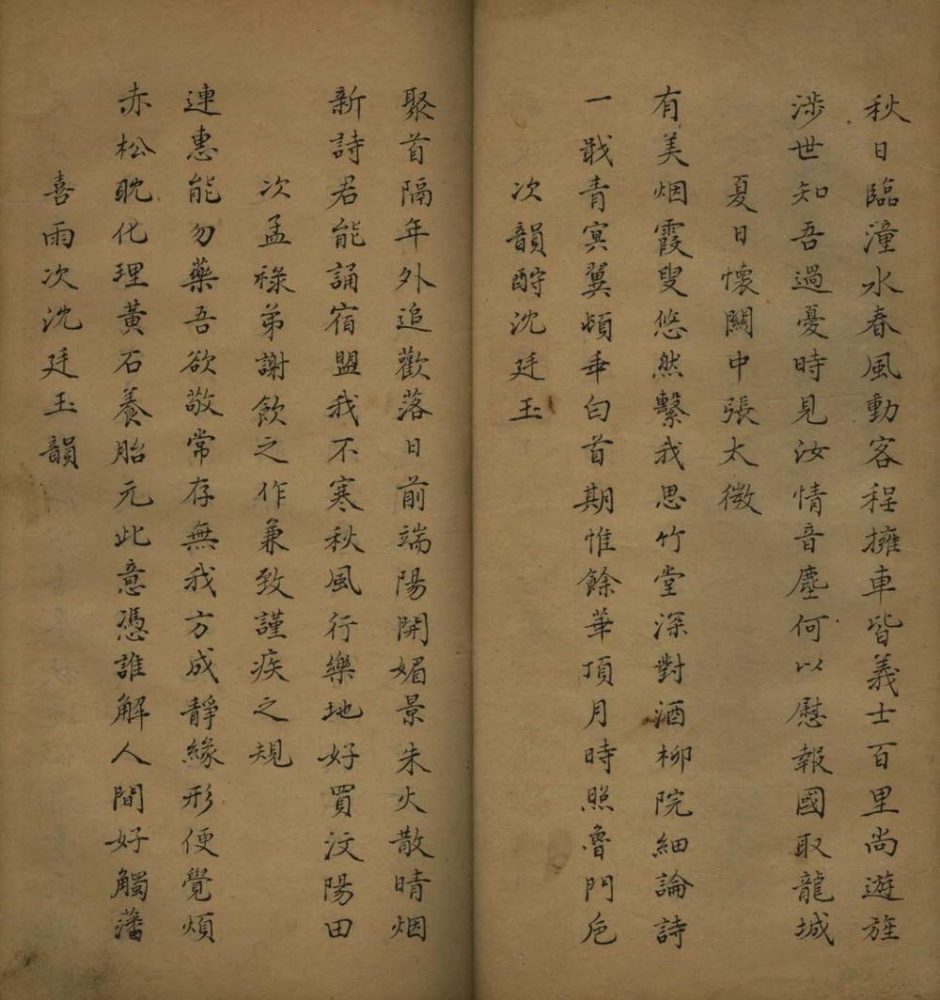 秋日臨潼水春風動客程擁車皆義士百里尚遊旌
涉世知吾過憂時見汝情音塵何以慰報國取龍城
夏日懷關中張太微
有美烟霞叟悠然繫我思竹堂深對酒柳院細論詩
一戢青冥翼頻乖白首期惟餘華頂月時照魯門卮
次韻酧沈廷玉
聚首隔年外追歡落日前端陽開媚景朱火散晴烟
新詩君能誦宿盟我不寒秋風行樂地好買汶陽田
次孟祿弟謝飲之作兼致謹疾之規
連惠能勿藥吾欲敬常存無我方成靜緣形便覺煩
赤松耽化理黃石養胎元此意憑誰解人間好觸藩
喜雨次沈廷玉韻